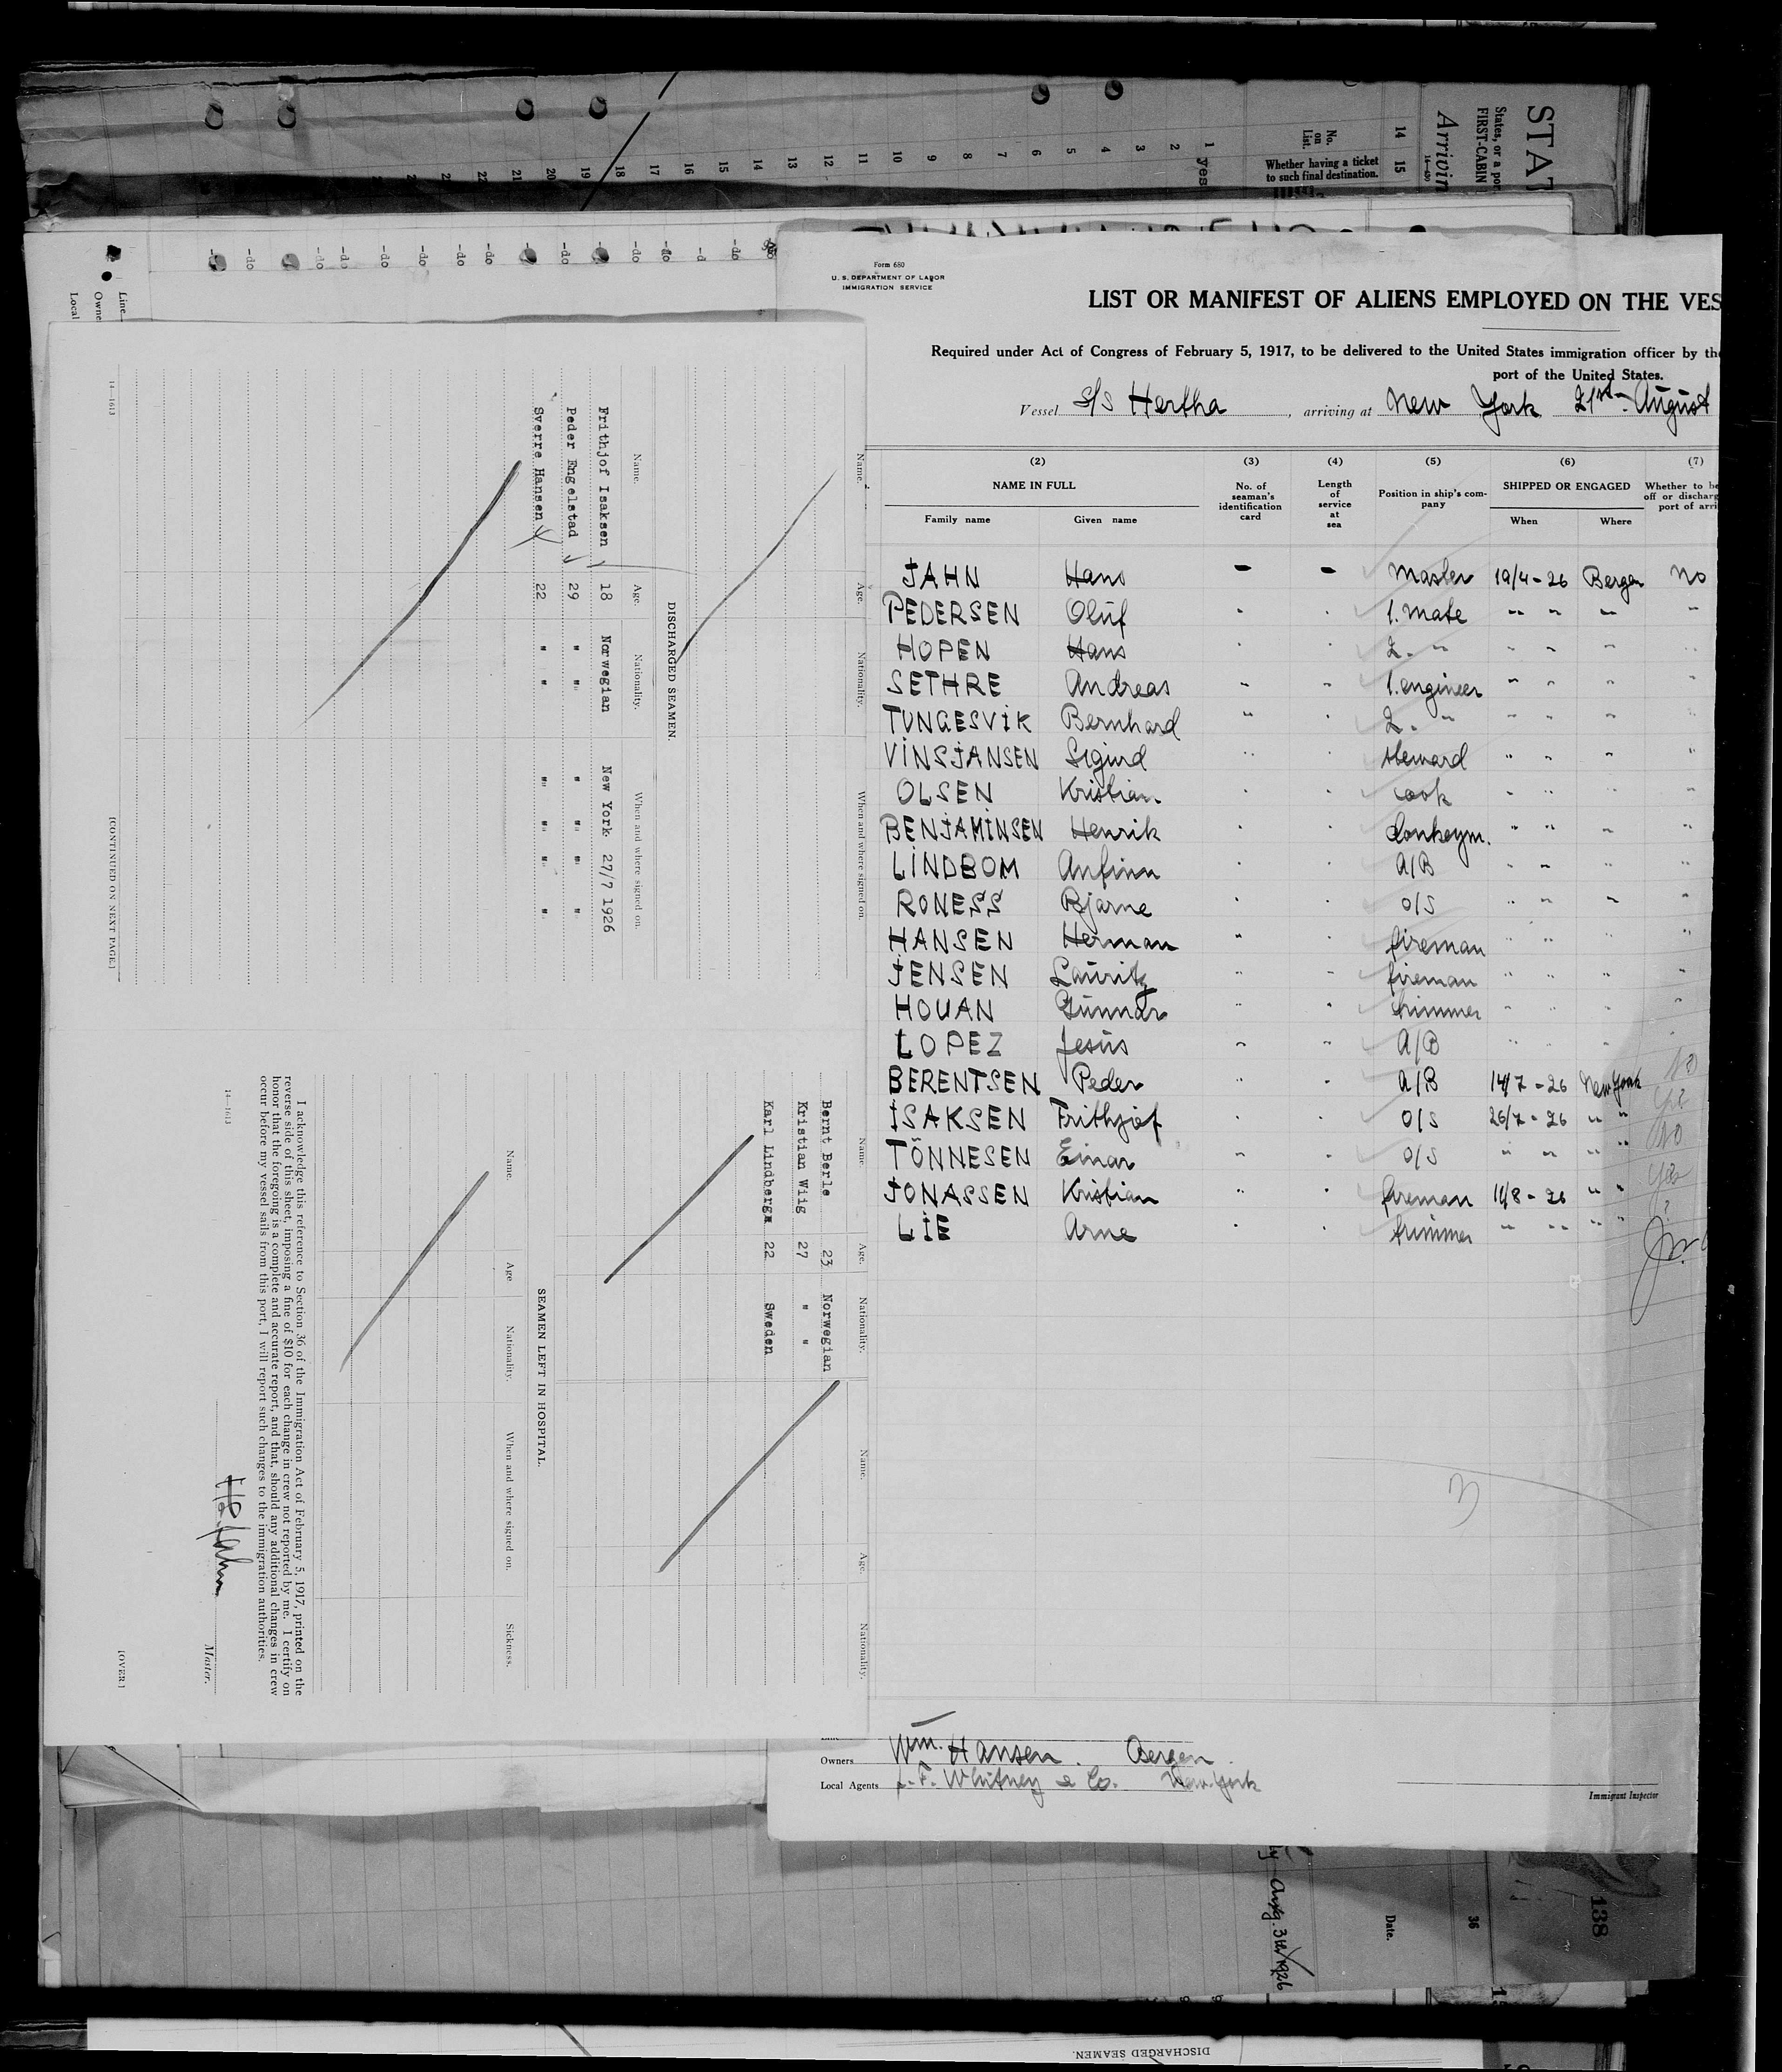 STAT
Arrivin
States, or a por
FIRST-CABIN
14 15
No. on List.
Whether having a ticket to such final destination.
1 yes
2
3
4
5
6
7
8
9
10
11
12
13
14
15
16
17
18
19
20
21
22
-do -do -do -do -do -do -do -do -do -do -do -do
Line
Owne
Local
Form 680
U. S. DEPARTMENT OF LABOR
IMMIGRATION SERVICE
LIST OR MANIFEST OF ALIENS EMPLOYED ON THE VES
Required under Act of Congress of February 5, 1917, to be delivered to the United States immigration officer by the
port of the United States.
Vessel S/S Hertha, arriving at New York 21st August
(2) (3) (4) (5) (6) (7)
NAME IN FULL No. of seaman's identification card Length of service at sea Position in ship's company SHIPPED OR ENGAGED Whether to be off or discharg port of arri
Family name Given name When Where
JAHN Hans - - Master 19/4-26 Bergen no
PEDERSEN Oluf " " 1. Mate " " " "
HOPEN Hans " " 2. " " " " "
SETHRE Andreas " " 1. engineer " " " "
TUNGESVIK Bernhard " " 2. " " " " "
VINSJANSEN Sigurd " " Steward " " " "
OLSEN Kristian " " cook " " " "
BENJAMINSEN Henrik " " donkeym. " " " "
LINDBOM Anfinn " " A/B " " " "
RONESS Bjarne " " O/S " " " "
HANSEN Herman " " fireman " " " "
JENSEN Lauritz " " fireman " " " "
HOUAN Gunnar " " trimmer " " " "
LOPEZ Jesus " " A/B " " " "
BERENTSEN Peder " " A/B 14/7-26 New York No
ISAKSEN Frithjof " " O/S 26/7-26 " " yes
TÖNNESEN Einar " " O/S " " " " No
JONASSEN Kristian " " fireman 11/8-26 " " yes
LIE Arne " " trimmer " " " "
3
Owners Wm. Hansen. Bergen.
Local Agents J. F. Whitney & Co. New York
Immigrant Inspector
Name. Age. Nationality. When and where signed on.
DISCHARGED SEAMEN.
Name. Age. Nationality. When and where signed on.
Frithjof Isaksen 18 Norwegian New York 27/7 1926
Peder Engelstad 29 " " " " " "
Sverre Hansen 22 " " " " " "
[CONTINUED ON NEXT PAGE.]
14—1613
Name. Age. Nationality. Name. Age. Nationality.
Bernt Berle 23 Norwegian
Kristian Wiig 27 " "
Karl Lindberg 22 Sweden
SEAMEN LEFT IN HOSPITAL.
Name. Age. Nationality. When and where signed on. Sickness.
I acknowledge this reference to Section 36 of the Immigration Act of February 5, 1917, printed on the
reverse side of this sheet, imposing a fine of $10 for each change in crew not reported by me. I certify on
honor that the foregoing is a complete and accurate report, and that, should any additional changes in crew
occur before my vessel sails from this port, I will report such changes to the immigration authorities.
Jahn
Master.
14—1613
[OVER.]
138
36
Date.
Aug. 31st/1926
DISCHARGED SEAMEN.